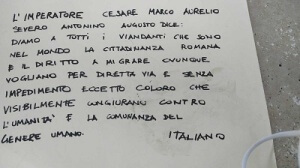 L'IMPERATORE CESARE MARCO AURELIO
SEVERO ANTONINO AUGUSTO DICE:
DIAMO A TOTTI I VIANDANTI CHE SONO
NEL MONDO LA CITTADINANZA ROMANA
E IL DIRITTO A MIGRARE OVUNQUE
VOGLIANO PER DIRETTA VIA E SENZA
IMPEDIMENTO ECCETTO COLORO CHE
VISIBILMENTE CONGIURANO CONTRO
L'UMANITA' E LA COMUNANZA DEL
GENERE UMANO.
ITALIANO